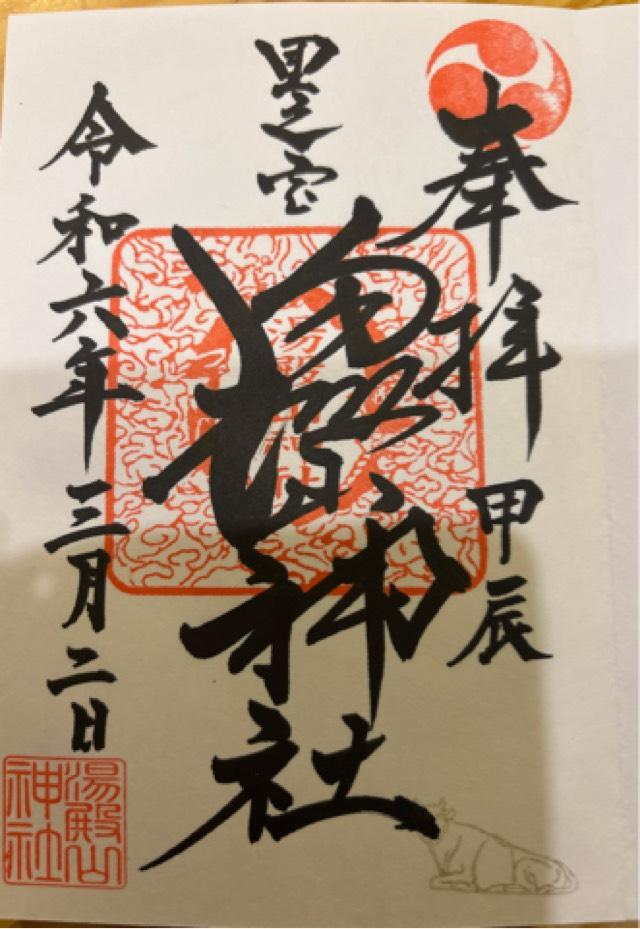 奉拝 甲辰
里之宮
神社
令和六年三月二日
湯殿山
神社